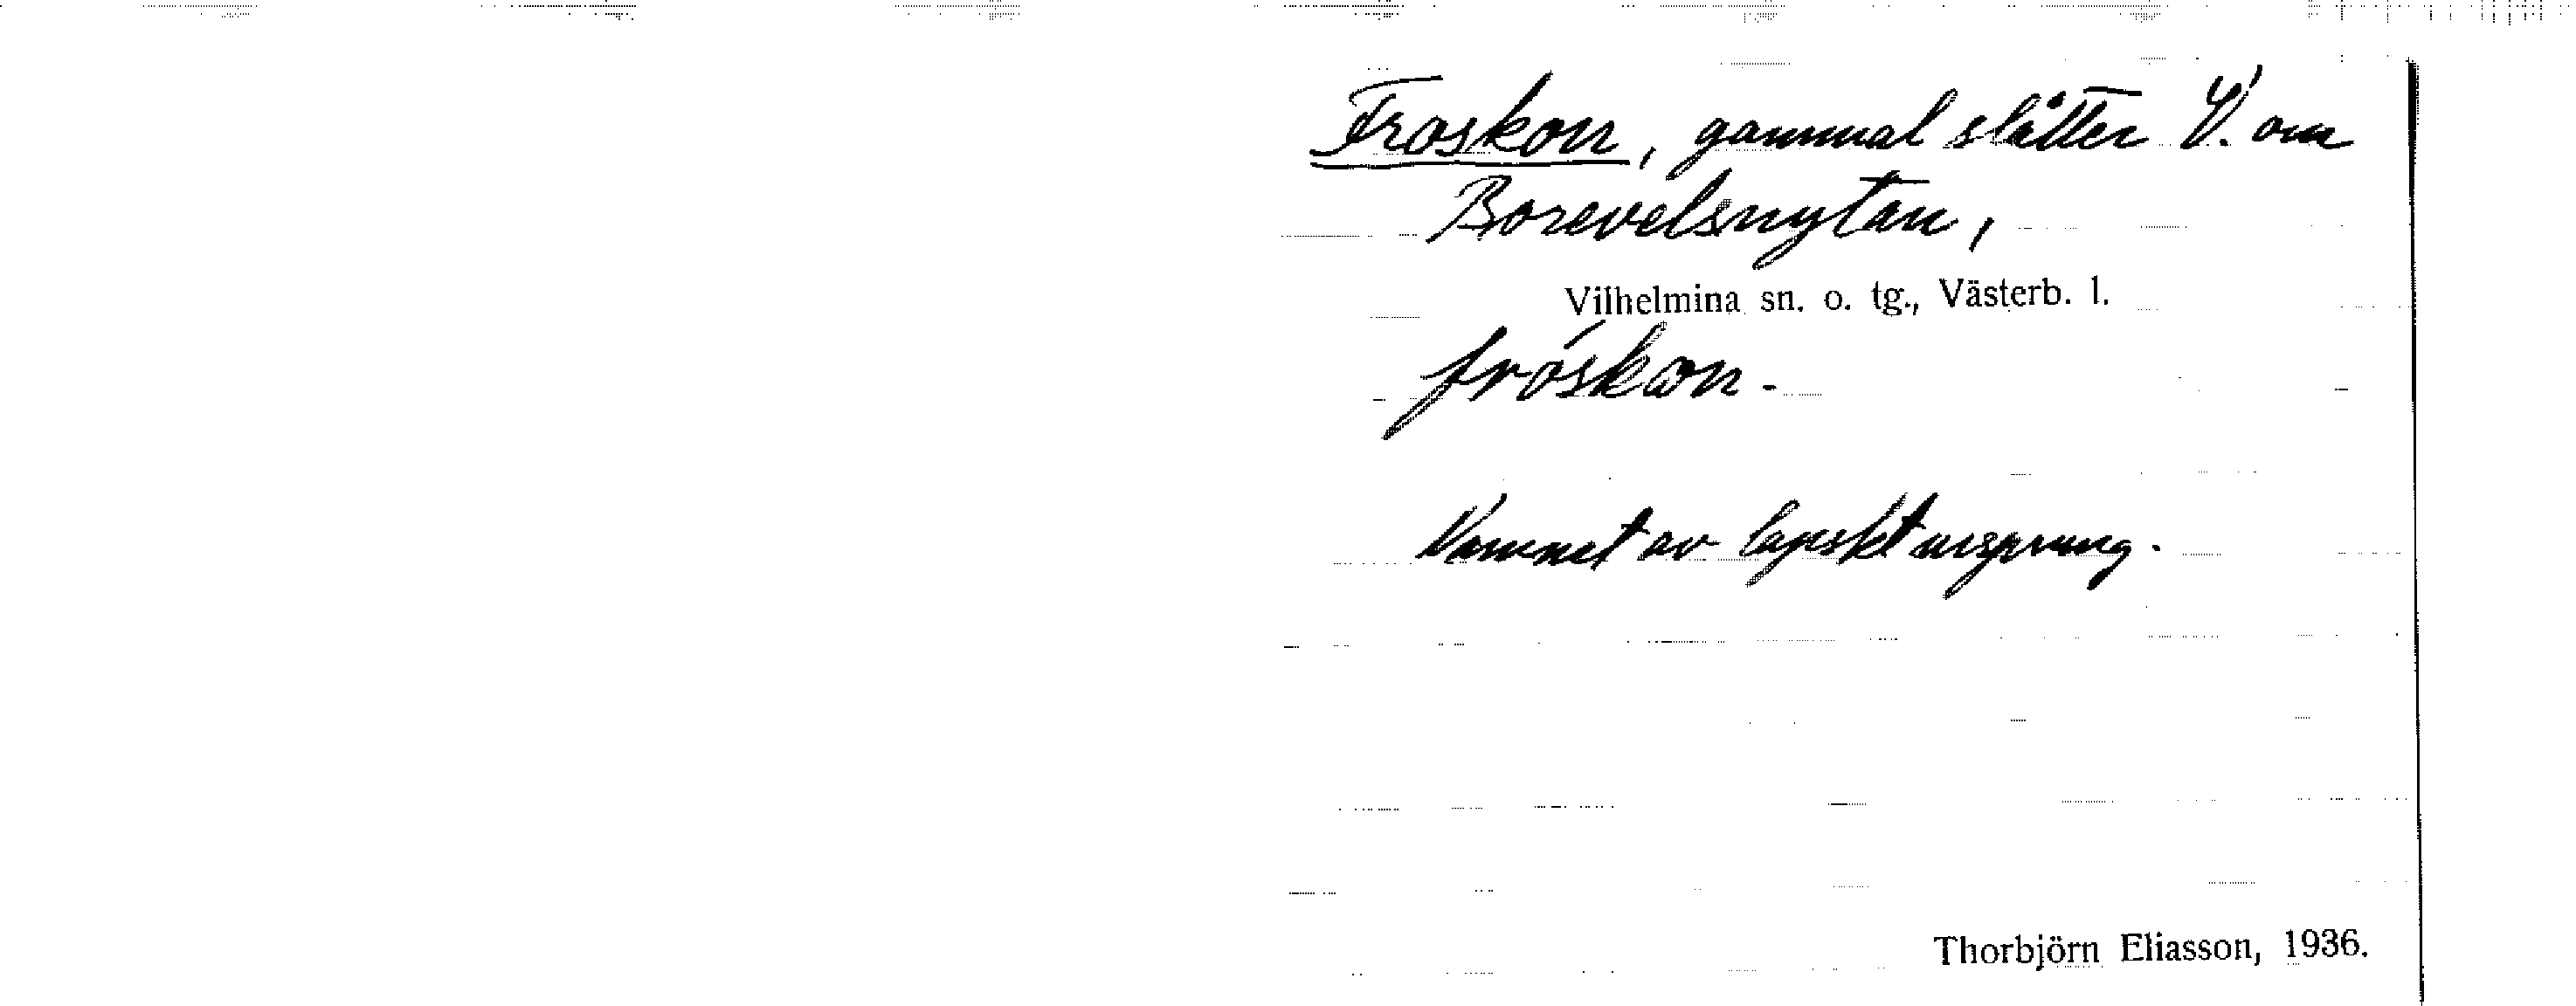 Froskon, gammal slåtter V. om
Borevelsnytan,
Vilhelmina sn. o. tg., Västerb. l.
fróskon.
Namnet av lapskt ursprung.
Thorbjörn Eliasson, 1936.